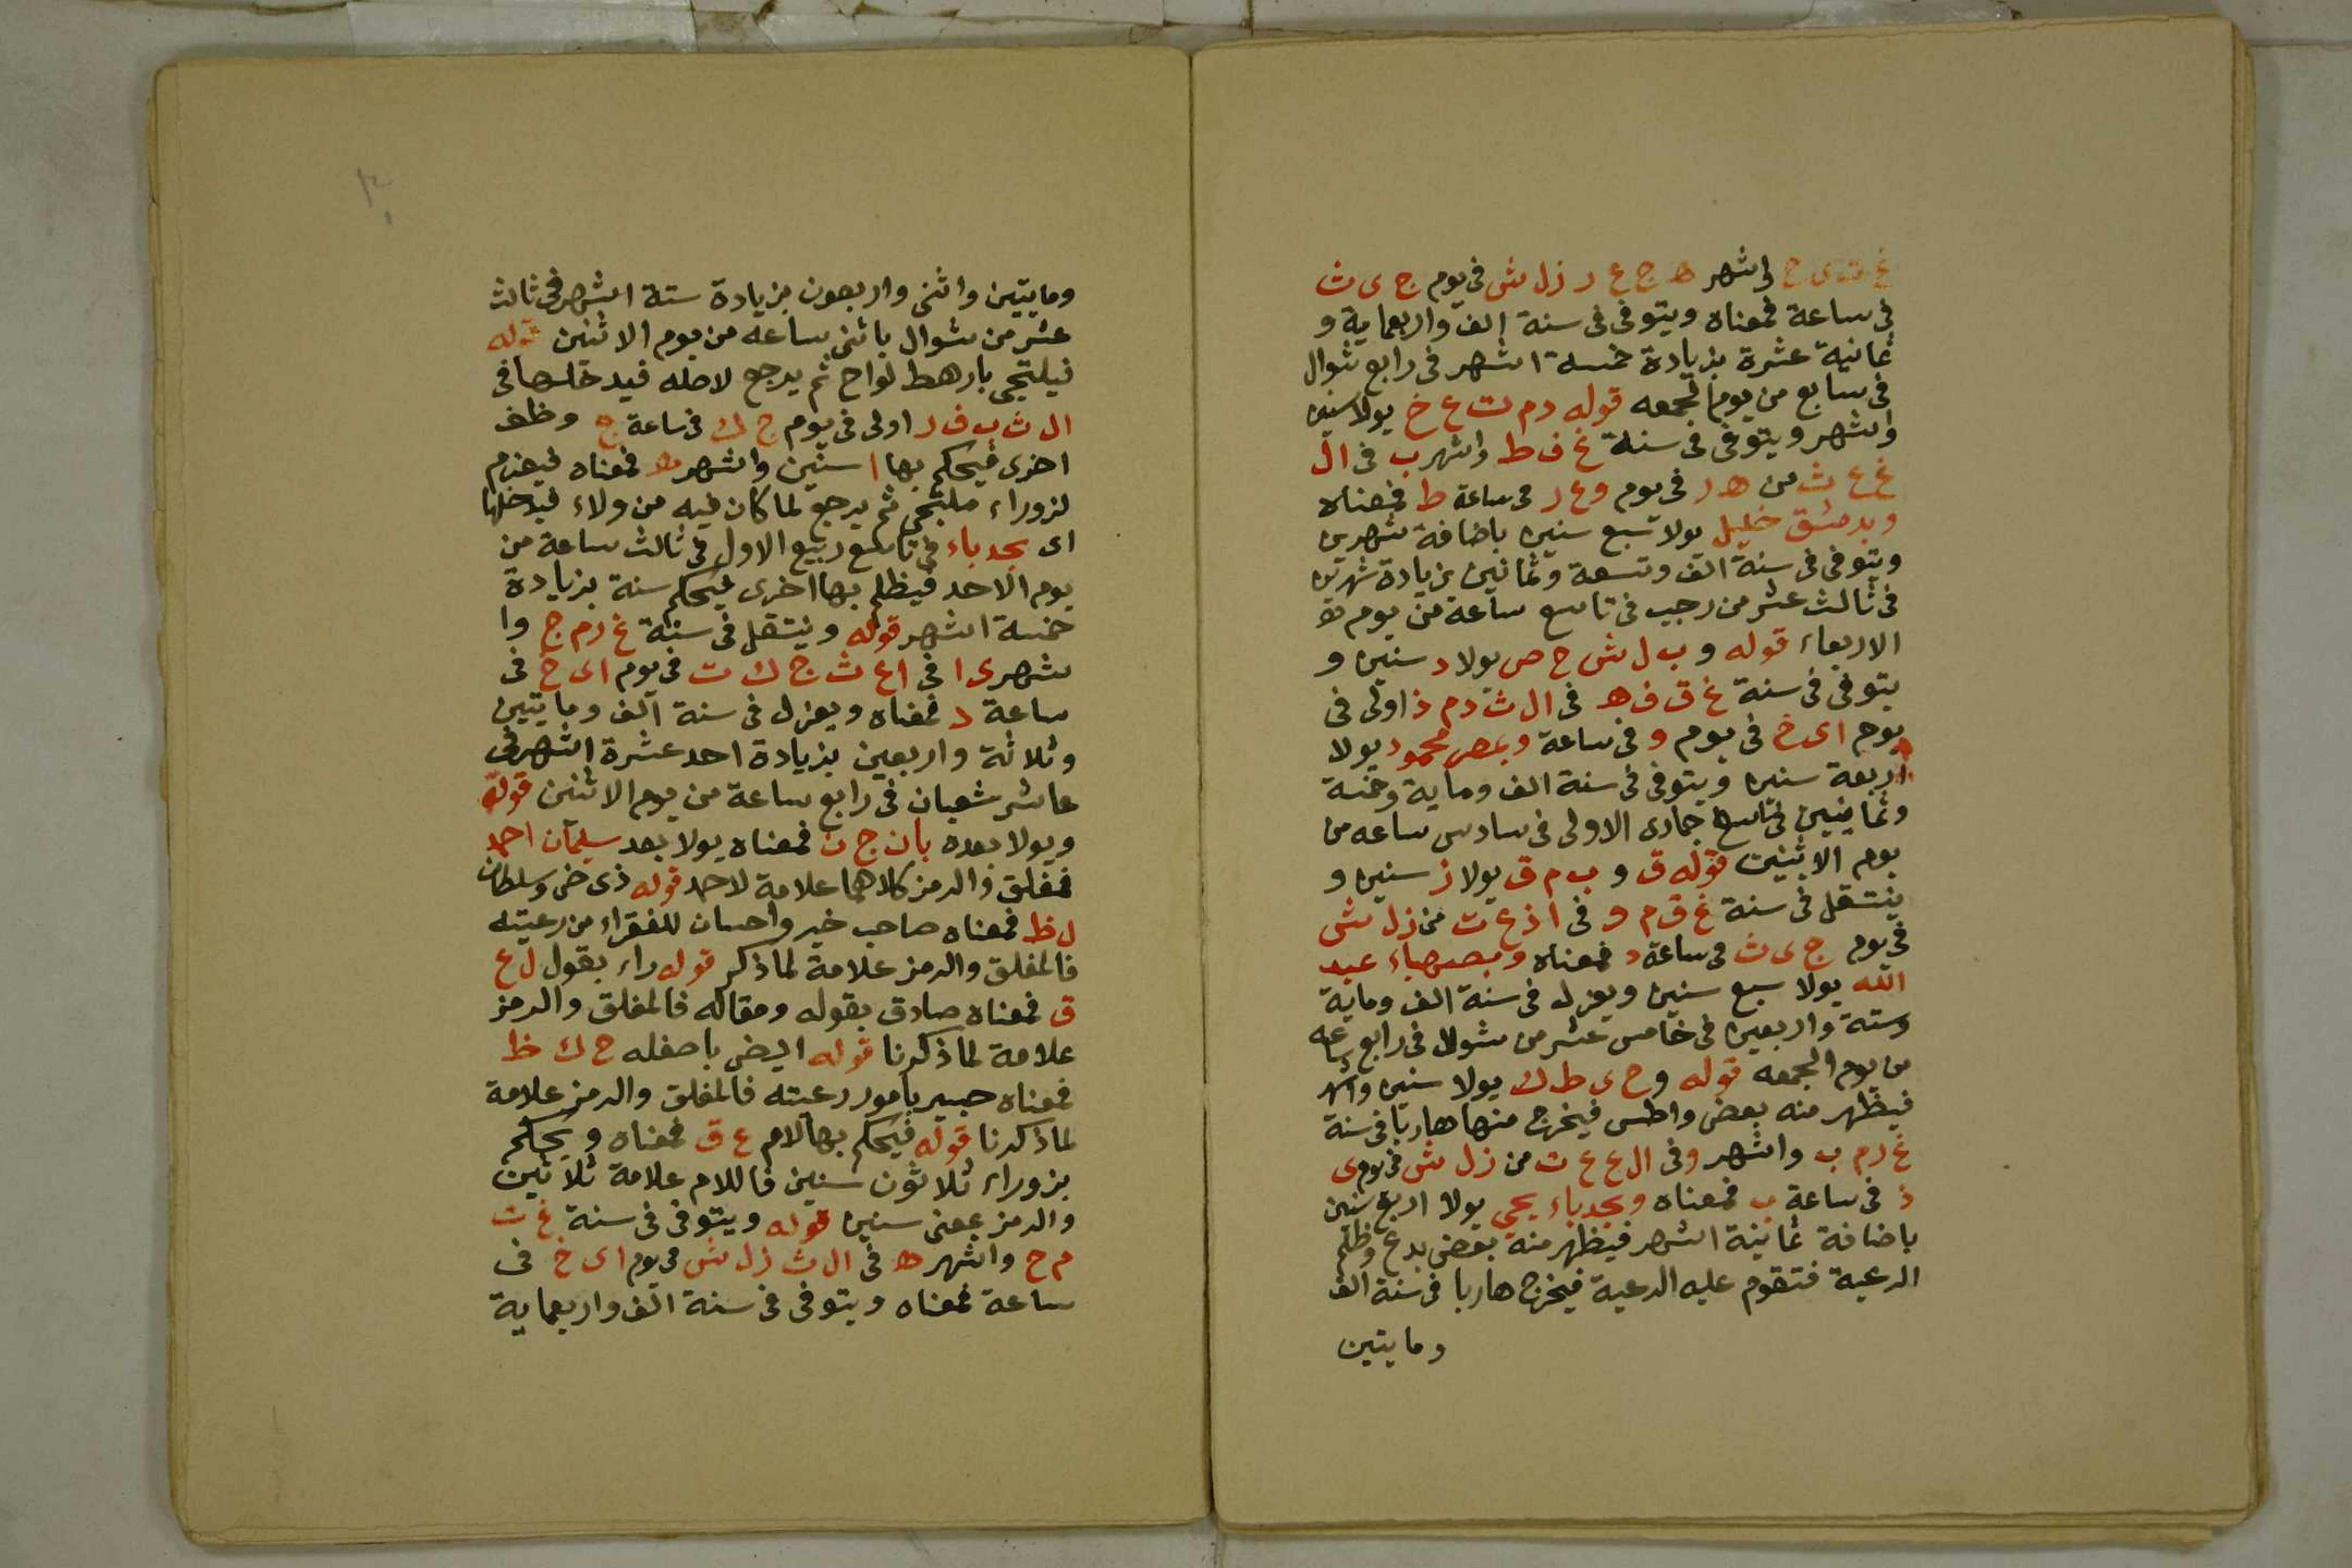 غ ت ى ح فى شهر ه ج ع د ز ل ش فى يوم ج ى ث
فى ساعة فمعناه ويتوفى فى سنة الف واربعماية و
ثمانية عشرة بزيادة خمسة اشهر فى رابع شوال
فى سابع من يوم الجمعه قوله د م ت ع خ يولا سنين
واشهر ويتوفى فى سنة غ ف ط واشهر ب فى ال
غ ع ث من ه د فى يوم و ع د فى ساعة ط فمعناه
وبدمشق خليل يولا تسع سنين باضافة شهرين
ويتوفى فى سنة الف وتسعة وثمانين بزيادة شهرين
فى ثالث عشر من رجب فى تاسع ساعة من يوم
الاربعاء قوله و ب ل ش ح ص يولا د سنين و
يتوفى فى سنة غ ق ف ه فى ال ث د م ذ اولى فى
يوم اى خ فى يوم و فى ساعة وبمصر محمود يولا
اربعة سنين ويتوفى فى سنة الف وماية وخمسة
وثمانين فى تاسع جمادى الاولى فى سادس ساعه من
يوم الاثنين قوله ق و ب م ق يولا ز سنين و
ينتقل فى سنة غ ق م و فى ا ذ ع ت من ز ل ش
فى يوم ج ى ث فى ساعة د فمعناه وبصهباء عبد
الله يولا سبع سنين ويعزل فى سنة الف وماية
وستة واربعين فى خامس عشر من شوال فى رابع ساعه
من يوم الجمعه قوله و ح ى ط ك يولا سنين واشهر
فيظهر منه بعض واطس فيخرج منها هاربا فى سنة
غ ر م ب واشهر و فى ال ع ع ت من ز ل ش فى يوم ى
ذ فى ساعة ب فمعناه وبجدباء يحيى يولا اربع سنين
باضافة ثمانية اشهر فيظهر منه بعض بدع وظلم
الرعية فتقوم عليه الرعية فيخرج هاربا فى سنة الف
ومايتين
ومايتين واثنى واربعون بزيادة ستة اشهر فى ثالث
عشر من شوال باثنى ساعه من يوم الاثنين قوله
فيلتجى بارهط لواح ثم يرجع لاصله فيدخلها فى
ال ث ب ف ر اولى فى يوم ج ك فى ساعة ج وظف
اخرى فيحكم بها ا سنين واشهر ه فمعناه فيهزم
لزوراء ملتجى ثم يرجع لما كان فيه من ولاء فيدخلها
اى بجدباء فى تاسع ربيع الاول فى ثالث ساعة من
يوم الاحد فيظلم بها اخرى فيحكم سنة بزيادة
خمسة اشهر قوله وينتقل فى سنة غ ر م ج وا
شهرى ا فى اع ث ج ك ت فى يوم اى ح فى
ساعة د فمعناه ويعزل فى سنة الف ومايتين
وثلاثة واربعين بزيادة احد عشرة اشهر فى
عاشر شعبان فى رابع ساعة من يوم الاثنين قوله
ويولا بعده بان ج ن فمعناه يولا بعد سليمان احمد
فمغلق والرمز كلاهما علامة لاحمد قوله ذى خض وسلطان
ل ظ فمعناه صاحب خير واحسان للفقراء من رعيته
فالمغلق والرمز علامة لما ذكر قوله راء بقول ل ع
ق فمعناه صادق بقوله ومقاله فالمغلق والرمز
علامة لما ذكرنا قوله ايضى باصفله ح ك ظ
فمعناه حبير بامور رعيته فالمغلق والرمز علامة
لما ذكرنا قوله فيحكم بها لام ع ق فمعناه ويحكم
بزوراء ثلاثون سنين فاللام علامة ثلاثين
والرمز بمعنى سنين قوله ويتوفى فى سنة غ ت
م ح واشهر ه فى ال ث ز ل ش فى يوم اى خ فى
ساعة فمعناه ويتوفى فى سنة الف واربعماية